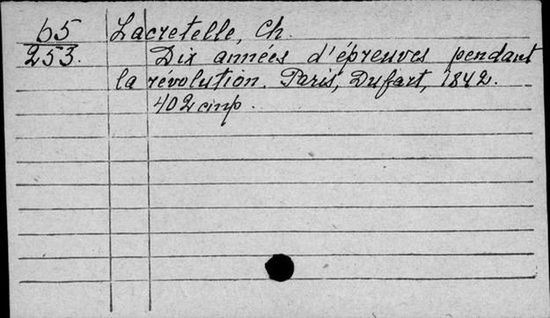 65 Lacretelle, Ch.
253. Dix années d'épreuves pendant
la révolution. Paris, Dufart, 1842.
402 стр.